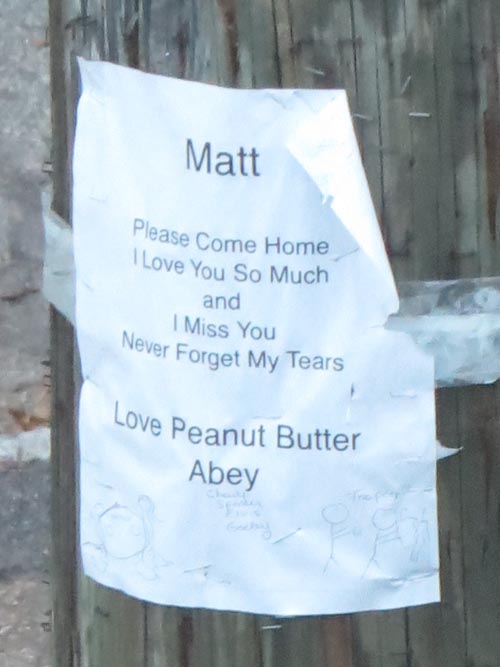 Matt
Please Come Home
I Love You So Much
and
I Miss You
Never Forget My Tears
Love Peanut Butter
Abey